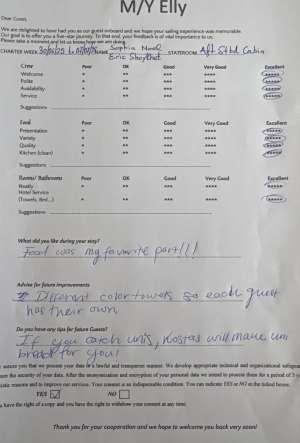 M/Y Elly
Dear Guest,
We are delighted to have had you as our guest onboard and we hope your sailing experience was memorable.
Our goal is to offer you a five-star journey. To that end, your feedback is of vital importance to us.
Please take a moment and let us know how we are doing.
CHARTER WEEK NAME Sophia Noel STATEROOM Aft Stbd Cabin
Eric
Crew Poor OK Good Very Good Excellent
Welcome * ** *** **** *****
Polite * ** *** **** *****
Availability * ** *** **** *****
Service * ** *** **** *****
Suggestions
Food Poor OK Good Very Good Excellent
Presentation * ** *** **** *****
Variety * ** *** **** *****
Quality * ** *** **** *****
Kitchen (clean) * ** *** **** *****
Suggestions
Rooms/ Bathrooms Poor OK Good Very Good Excellent
Ready * ** *** **** *****
Hotel Service
(Towels, Bed...) * ** *** **** *****
Suggestions
What did you like during your stay?
Food was my favourite part!!!
Advise for future improvements
Different color towels so each guest
has their own
Do you have any tips for future Guests?
If you catch unis, Kostas will make uni
bread for you!
assure you that we process your data in a lawful and transparent manner. We develop appropriate technical and organizational
the security of your data. After the anonymization and encryption of your personal data we intend to process them for a period of
reasons and to improve our services. Your consent is an indispensable condition. You can indicate YES or NO in the failed boxes.
YES NO
have the right of a copy and you have the right to withdraw your consent at any time.
Thank you for your cooperation and we hope to welcome you back very soon!